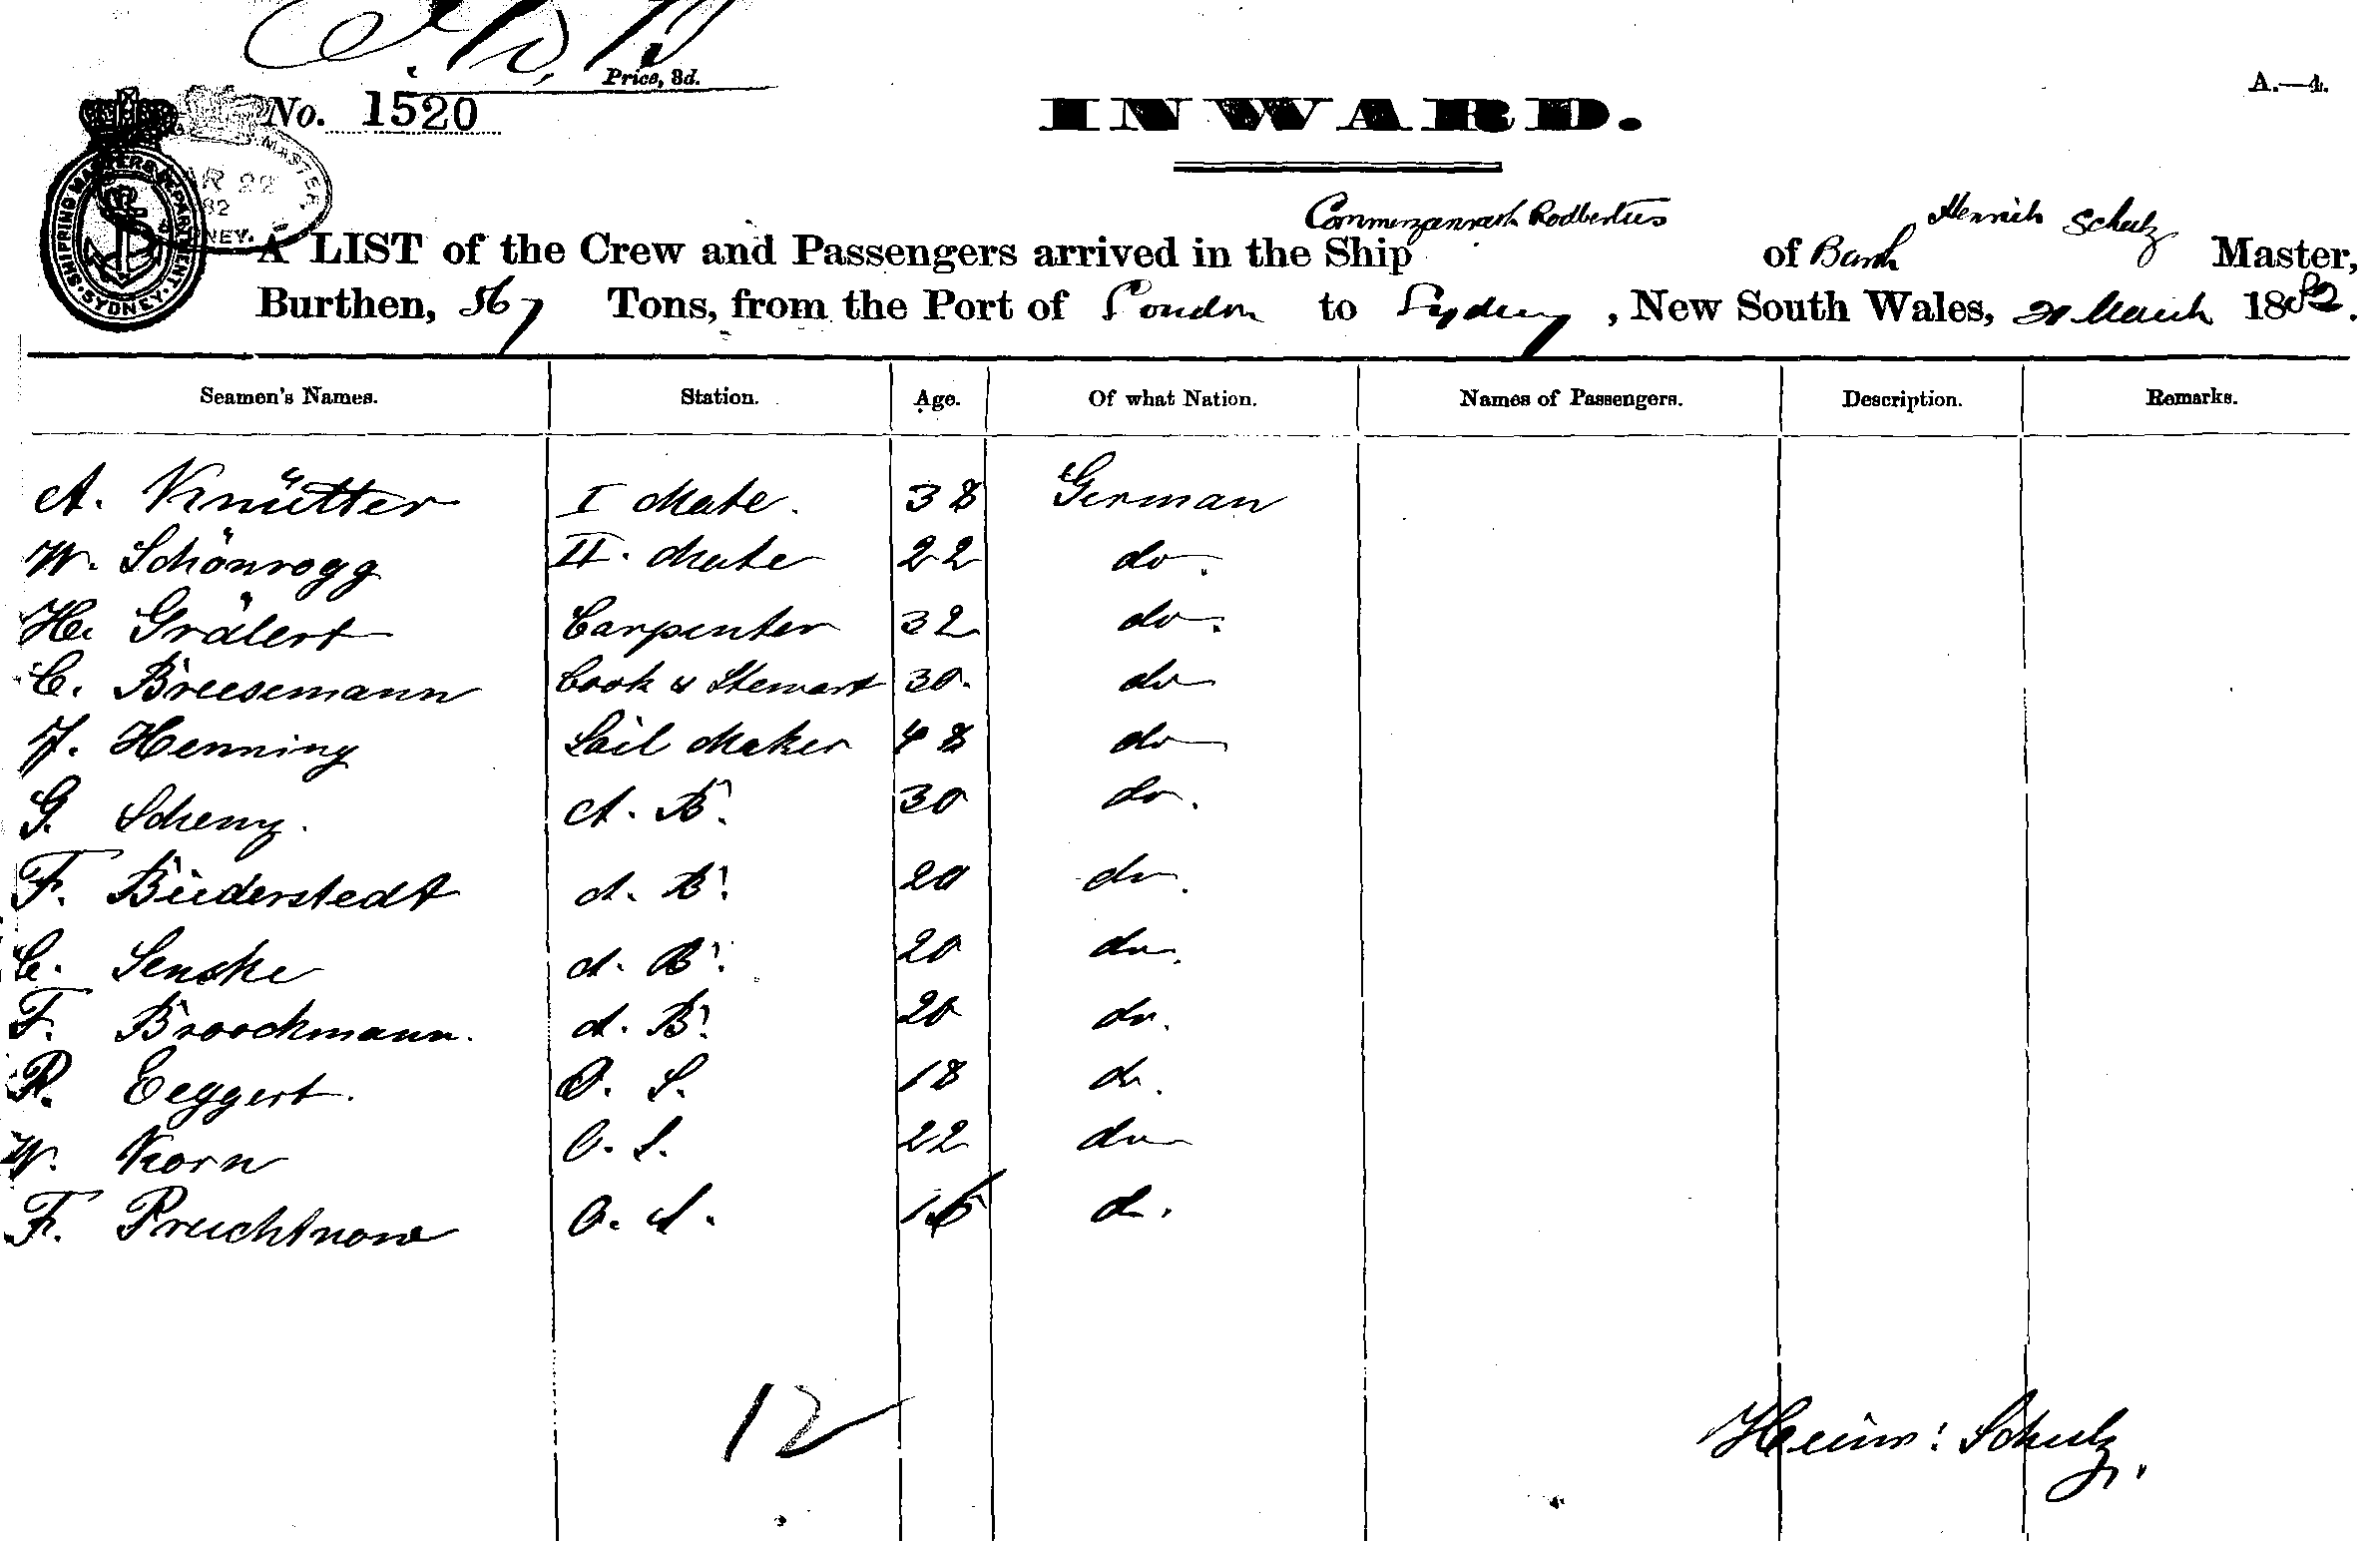 Price, 3d.
A.—4.
No. 1520
INWARD.
SHIPPING MASTER'S DEPARTMENT · SYDNEY ·
MASTER
MAR 22
82
Commerzienrath Rodbertus
Henrich Schulz
A LIST of the Crew and Passengers arrived in the Ship of Barth Master,
Burthen, 567 Tons, from the Port of London to Sydney, New South Wales, 21 March 1882.
Seamen's Names. Station. Age. Of what Nation. Names of Passengers. Description. Remarks.
A. Knütter I Mate. 38 German
W. Schönrogg II. Mate 22 do.
He. Grälert Carpenter 32 do.
C. Breesemann Cook & Stewart 30. do
J. Henning Sail Maker 48 do
G. Scheny. A. B. 30 do.
F. Büderstedt A. B. 20 do.
C. Senske A. B. 20 do.
F. Broockmann. A. B. 20 do.
R. Eeggert. O. S. 18 do.
W. Korn O. S. 22 do
F. Pruchtnow O. S. 16 do.
12
Heinr: Schulz.